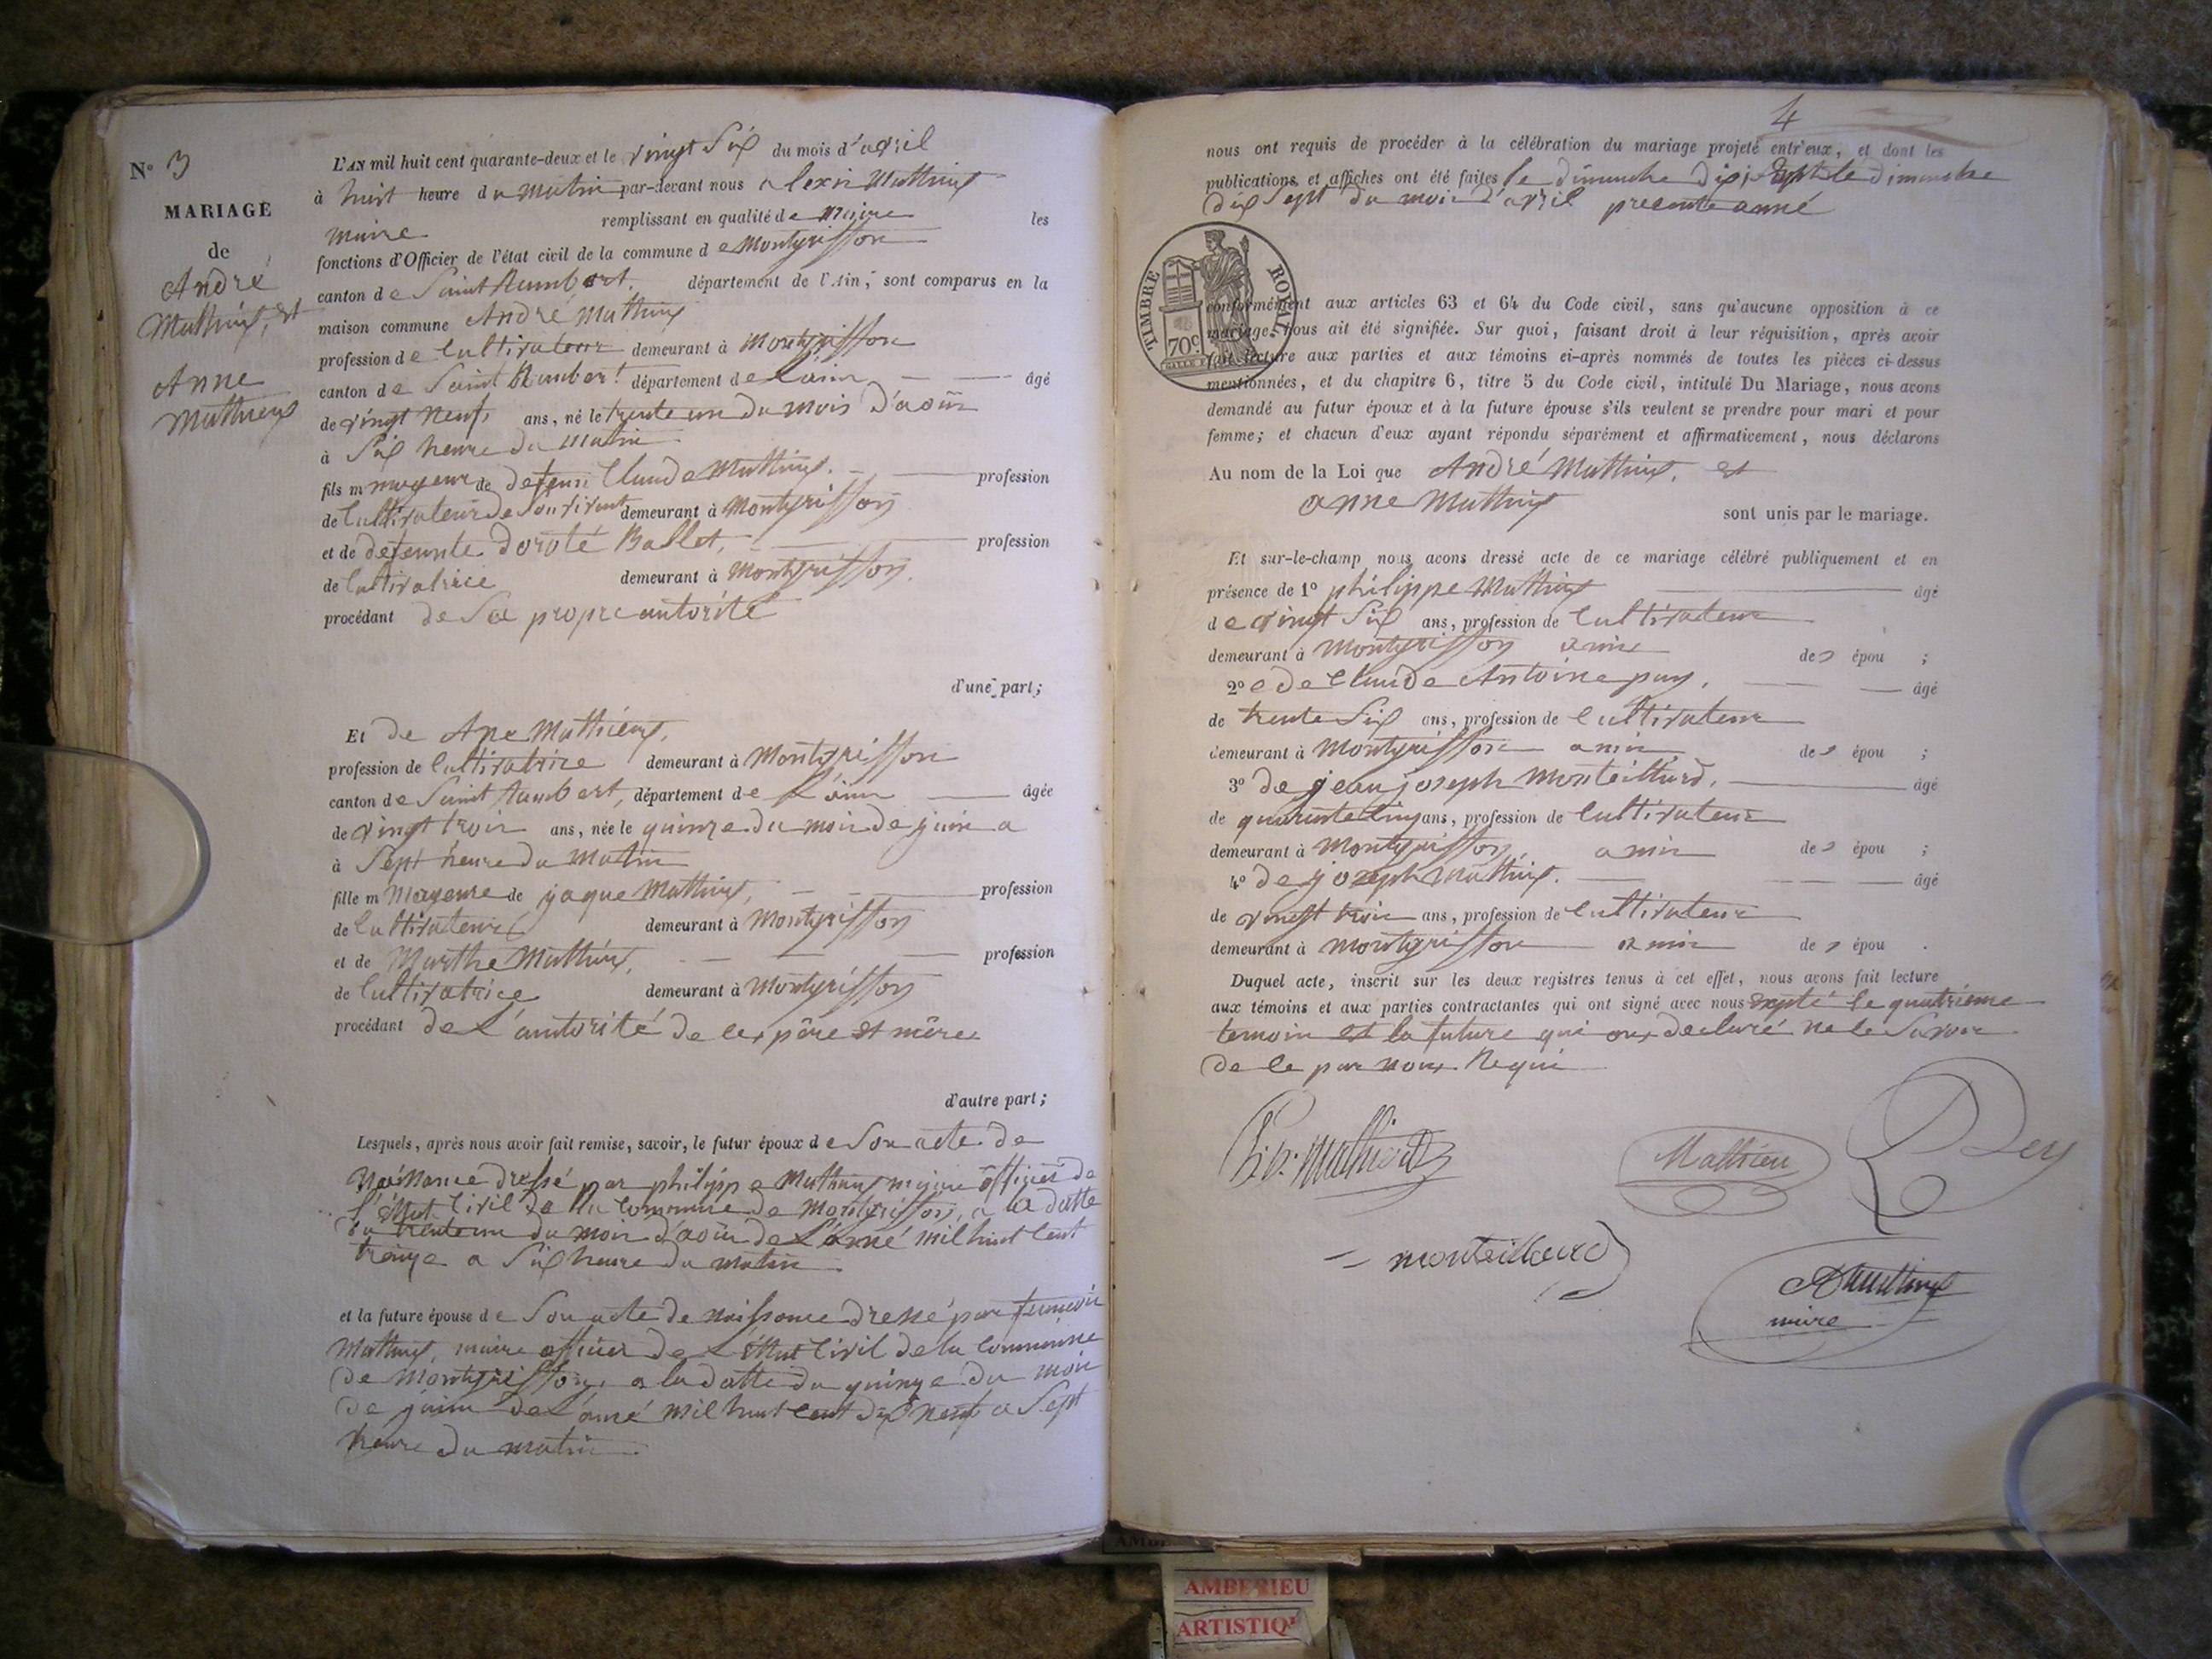 N° 3
MARIAGE
de
André
Mathieux, et
Anne
Mathieux
L'AN mil huit cent quarante-deux et le vingt Six du mois d'avril
à huit heure du matin par-devant nous alexis Mathieux
maire remplissant en qualité de Maire les
fonctions d'Officier de l'état civil de la commune de Montgriffon
canton de Saint Rambert, département de l'Ain, sont comparus en la
maison commune André Mathieux
profession de Cultivateur demeurant à Montgriffon
canton de Saint Rambert département de Lain âgé
de vingt neuf, ans, né le trente un du mois d'aoüt
à Six heure du matin
fils m mageur de defeun Claude Mathieux. profession
de Cultivateur de Son vivent demeurant à Montgriffon
et de defeunte doroté Ballet, profession
de Cultivatrice demeurant à Montgriffon.
procédant de Sa propre autorité
d'une part;
Et de Ane Mathieux,
profession de Cultivatrice demeurant à Montgriffon
canton de Saint Rambert, département de L'ain âgée
de vingt trois ans, née le quinze du mois de juin a
à Sept heure du Matin
fille m Mageure de jaque Mathieux, profession
de Cultivateur demeurant à Montgriffon
et de Marthe Mathieux, profession
de Cultivatrice demeurant à Montgriffon
procédant de L'autorité de ces père et mère
d'autre part;
Lesquels, après nous avoir fait remise, savoir, le futur époux de Son acte de
Naissance dressé par philippe Mathieux maire officier de
l'éttat Civil de la Commune de Montgriffon, a la datte
du trente un du mois d'aoüt de L'anné mil huit Cent
treize a Six heure du matin
et la future épouse de Son acte de naissance dressé par francois
Mathieux, maire officier de L'éttat Civil de la Commune
de Montgriffon, a la datte du quinze du mois
de juin de L'anné mil huit Cent dix neuf a Sept
heure du matin
4
nous ont requis de procéder à la célébration du mariage projeté entr'eux, et dont les
publications et affiches ont été faites le dimanche dix, et le dimanche
dix Sept du mois d'avril presente anné
TIMBRE ROYAL
70c
conformément aux articles 63 et 64 du Code civil, sans qu'aucune opposition à ce
mariage nous ait été signifiée. Sur quoi, faisant droit à leur réquisition, après avoir
fait lecture aux parties et aux témoins ci-après nommés de toutes les pièces ci-dessus
mentionnées, et du chapitre 6, titre 5 du Code civil, intitulé Du Mariage, nous avons
demandé au futur époux et à la future épouse s'ils veulent se prendre pour mari et pour
femme; et chacun d'eux ayant répondu séparément et affirmativement, nous déclarons
Au nom de la Loi que André Mathieux, et
anne Mathieux sont unis par le mariage.
Et sur-le-champ nous avons dressé acte de ce mariage célébré publiquement et en
présence de 1° philippe Mathieux âgé
de vingt Six ans, profession de Cultivateur
demeurant à Montgriffon amis des épou ;
2° de Claude Antoine puy, âgé
de trente Six ans, profession de Cultivateur
demeurant à Montgriffon amis des épou ;
3° de jean joseph Monteillard, âgé
de quarente Cinq ans, profession de Cultivateur
demeurant à Montgriffon, amis des épou ;
4° de joseph Mathieux. âgé
de vingt trois ans, profession de Cultivateur
demeurant à Montgriffon amis des épou .
Duquel acte, inscrit sur les deux registres tenus à cet effet, nous avons fait lecture
aux témoins et aux parties contractantes qui ont signé avec nous expté le quatrième
temoin et la future qui ons declaré ne le Savoir
de ce par nous Requi
Mathieu
Mathieu
monteillard
AMathieux
maire
AMBERIEU
ARTISTIQ